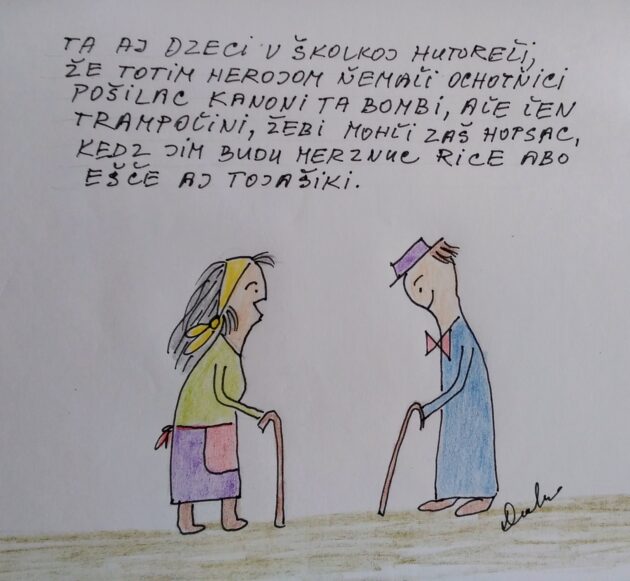 TA AJ DZECI V ŠKOLKOJ HUTOREĽI,
ŽE TOTIM HEROJOM ŇEMAĽI OCHOTŇICI
POŠILAC KANONI TA BOMBI, AĽE ĽEN
TRAMPOĽINI, ŽEBI MOHĽI ZAŠ HOPSAC,
KEDZ JIM BUDU MERZNUC RICE ABO
EŠČE AJ TOJAŠIKI.